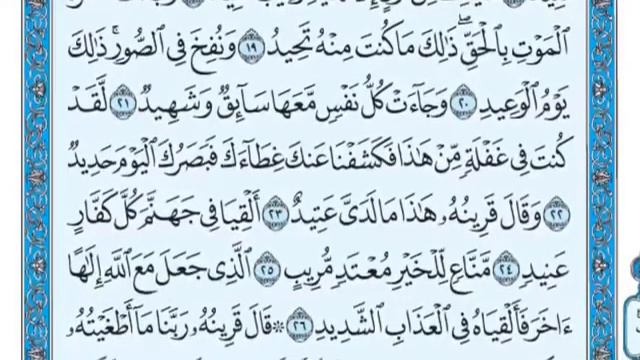 ٱلْمَوْتِ بِٱلْحَقِّ ۖ ذَٰلِكَ مَا كُنتَ مِنْهُ تَحِيدُ ١٩ وَنُفِخَ فِى ٱلصُّورِ ۚ ذَٰلِكَ
يَوْمُ ٱلْوَعِيدِ ٢٠ وَجَآءَتْ كُلُّ نَفْسٍ مَّعَهَا سَآئِقٌ وَشَهِيدٌ ٢١ لَّقَدْ
كُنتَ فِى غَفْلَةٍ مِّنْ هَٰذَا فَكَشَفْنَا عَنكَ غِطَآءَكَ فَبَصَرُكَ ٱلْيَوْمَ حَدِيدٌ
٢٢ وَقَالَ قَرِينُهُۥ هَٰذَا مَا لَدَىَّ عَتِيدٌ ٢٣ أَلْقِيَا فِى جَهَنَّمَ كُلَّ كَفَّارٍ
عَنِيدٍ ٢٤ مَّنَّاعٍ لِّلْخَيْرِ مُعْتَدٍ مُّرِيبٍ ٢٥ ٱلَّذِى جَعَلَ مَعَ ٱللَّهِ إِلَٰهًا
ءَاخَرَ فَأَلْقِيَاهُ فِى ٱلْعَذَابِ ٱلشَّدِيدِ ٢٦ ۞ قَالَ قَرِينُهُۥ رَبَّنَا مَآ أَطْغَيْتُهُۥ